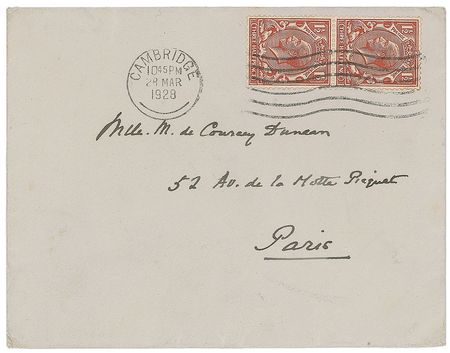 CAMBRIDGE
10 45 PM
29 MAR
1928
1½ 1½
Mlle. M. de Courcey Duncan
52 Av. de la Motte Picquet
Paris